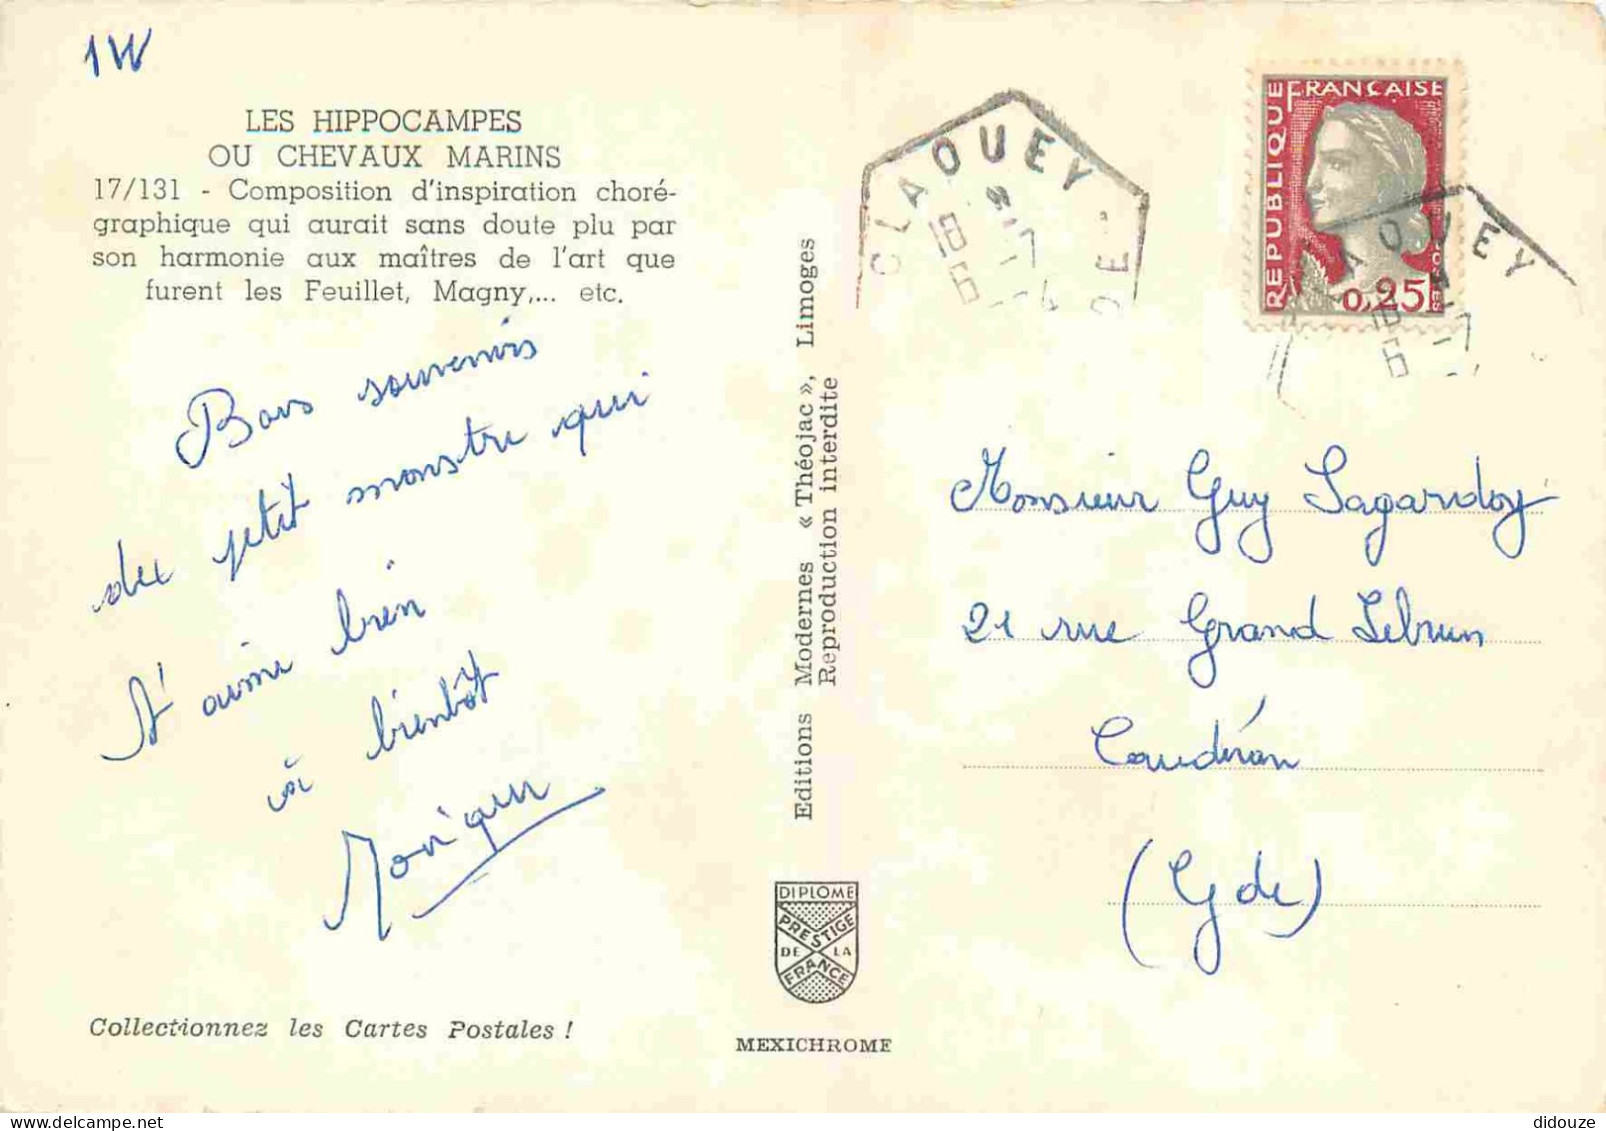 1W
LES HIPPOCAMPES
OU CHEVAUX MARINS
17/131 - Composition d'inspiration choré-
graphique qui aurait sans doute plu par
son harmonie aux maîtres de l'art que
furent les Feuillet, Magny,... etc.
Bons souvenirs
du petit monstre qui
t'aime bien
à bientôt
Collectionnez les Cartes Postales !
Editions Modernes « Théojac », Limoges
Reproduction interdite
DIPLOME
PRESTIGE
DE LA
FRANCE
MEXICHROME
CLAOUEY
18
6
-7
DE
REPUBLIQUE FRANÇAISE
0,25
POSTES
OUEY
18
6
-7
Monsieur Guy Lagardoy
21 rue Grand Lebrun
Caudéran
(Gde)
didouze